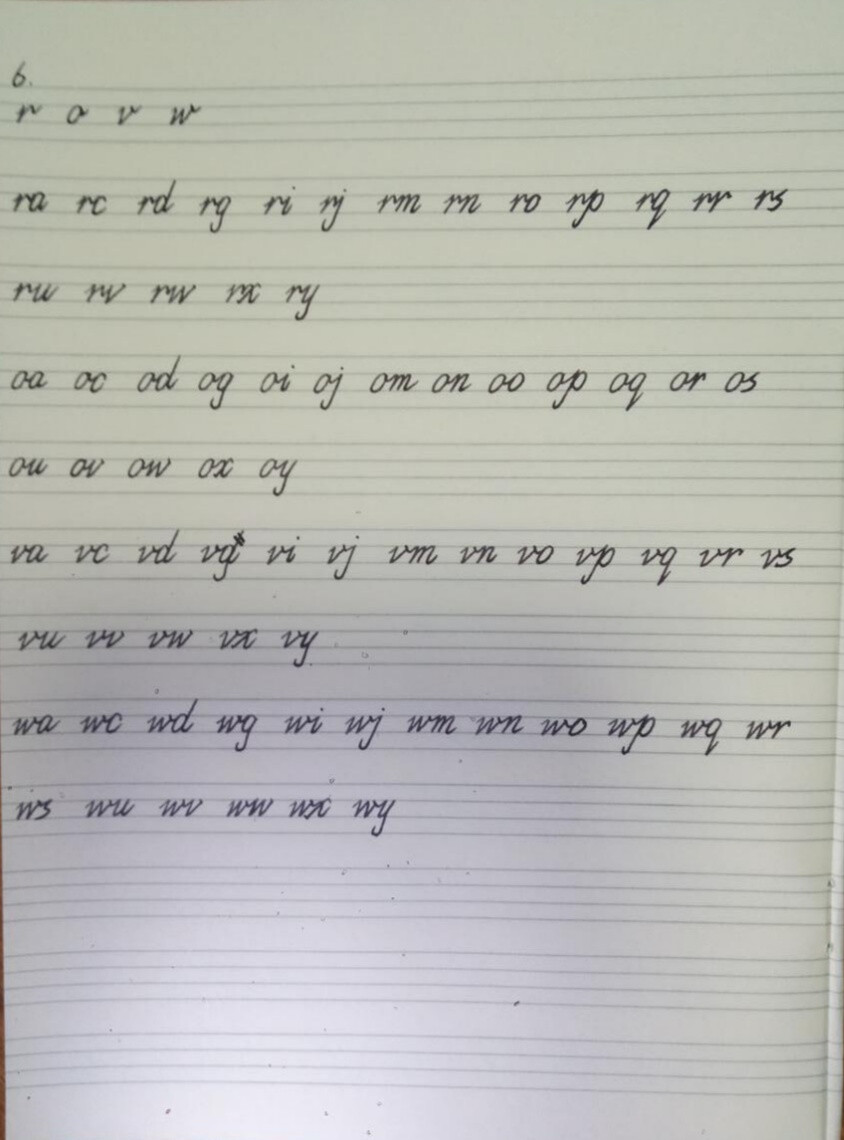 6.
r o v w
ra rc rd rg ri rj rm rn ro rp rq rr rs
ru rv rw rx ry
oa oc od og oi oj om on oo op oq or os
ou ov ow ox oy
va vc vd vg vi vj vm vn vo vp vq vr vs
vu vv vw vx vy
wa wc wd wg wi wj wm wn wo wp wq wr
ws wu wv ww wx wy